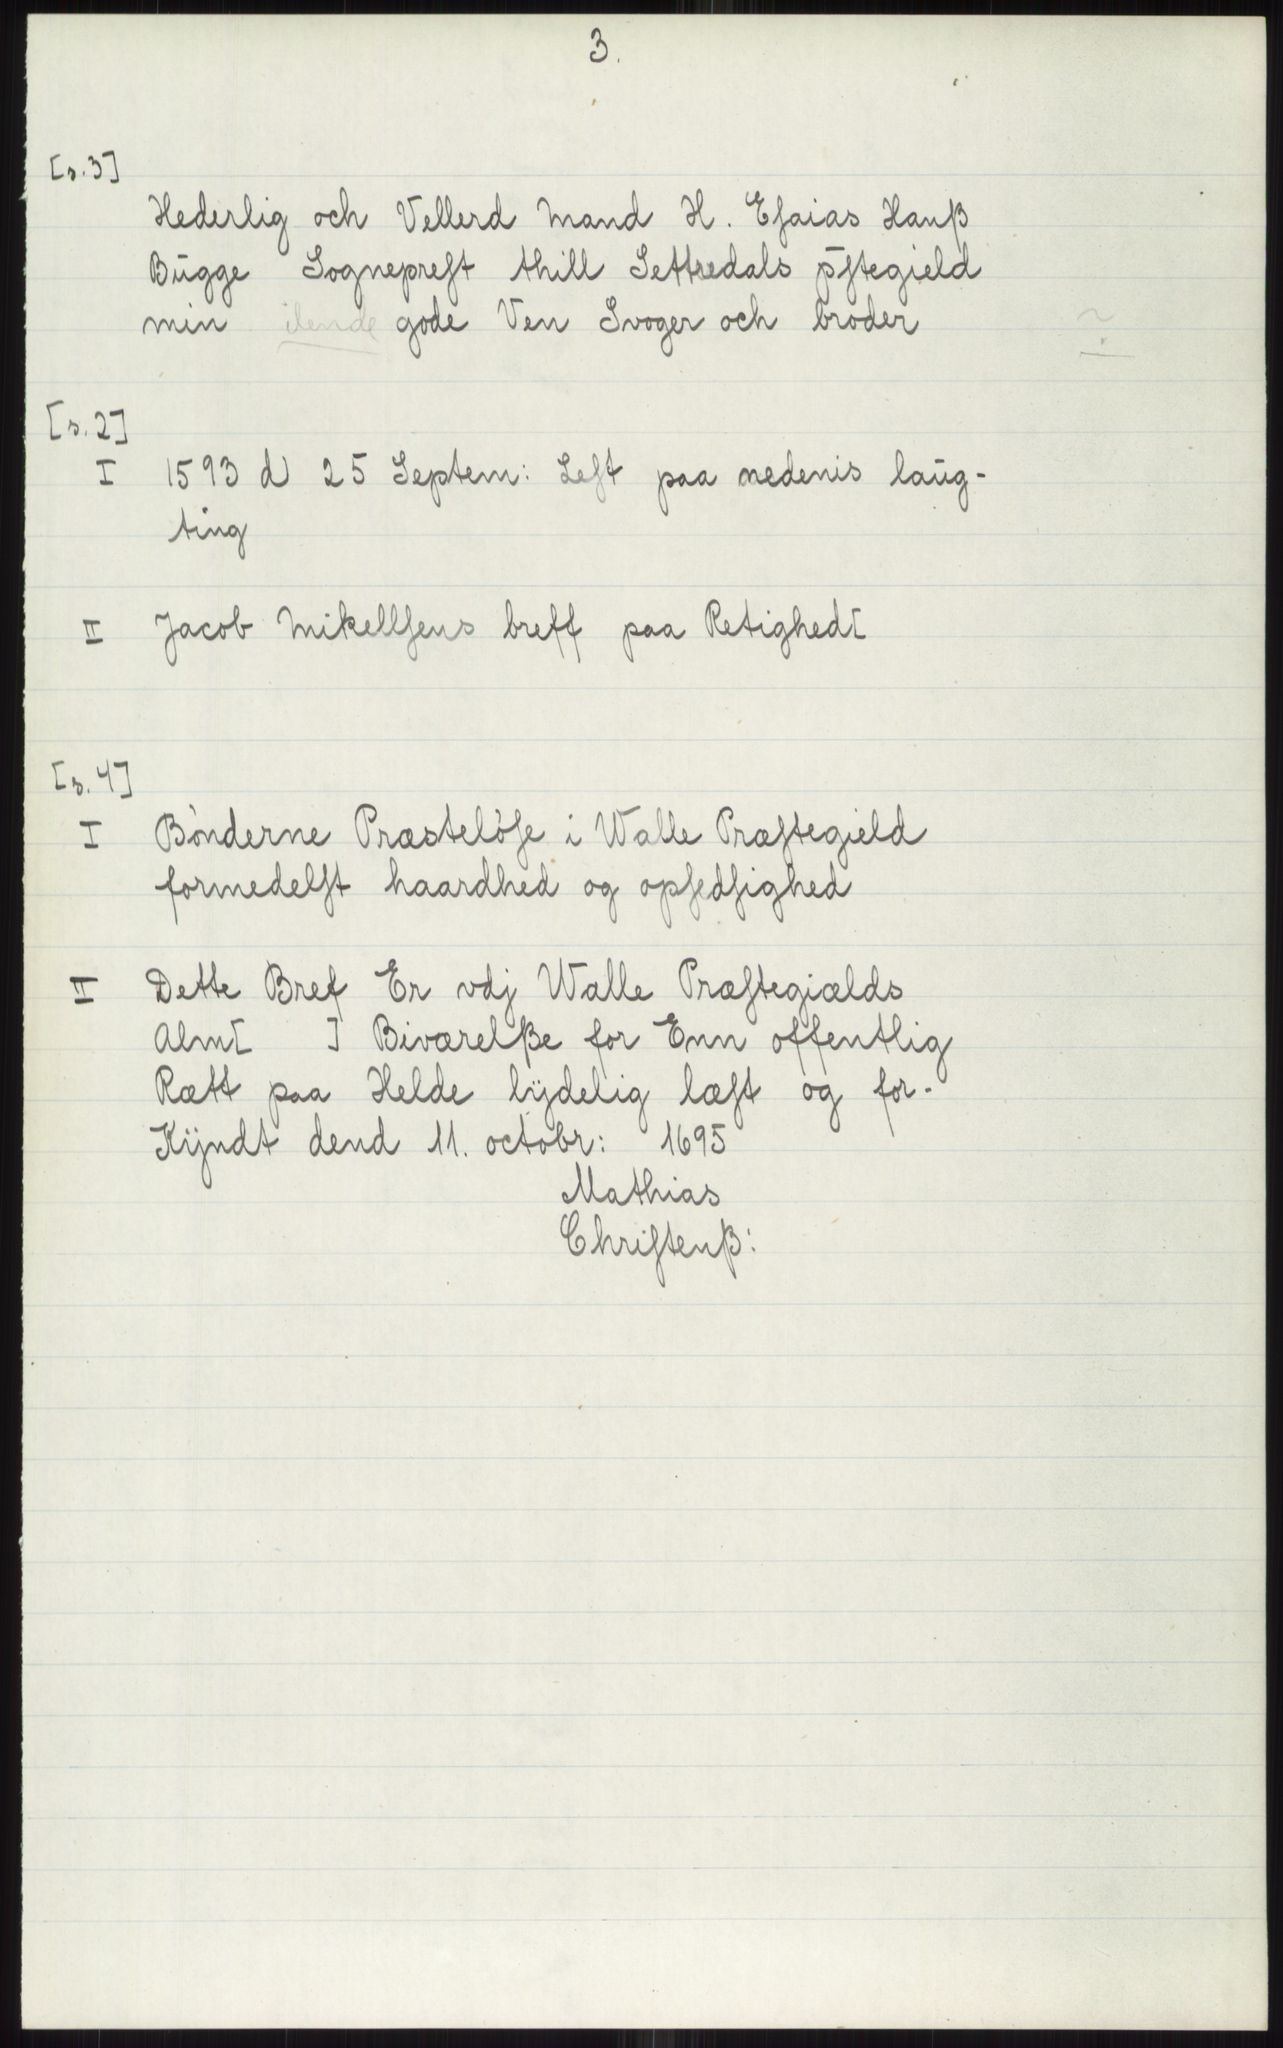 3.
[s.3]
Hederlig och Vellerd Mand H. Eſaias Hanß
Bŭgge Sognepreſt thill Settredals p̄ſtegield
min ilende gode Ven Svoger och broder
[s.2]
I 1593 d 25 Septem: Leſt paa nedenis laŭg-
ting
II Jacob Mikellſens breff paa Retighed[
[s.4]
I Bònderne Præstelòſe i Walle Præſtegield
formedelſt haardhed og opſedſighed
II Dette Bref Er vdj Walle Præſtegiælds
Alm[ ] Biværelße for Enn offentlig
Rætt paa Helde lÿdelig læſt og for-
Kÿndt dend 11. octobr: 1695
Mathias
Chriſtenß: